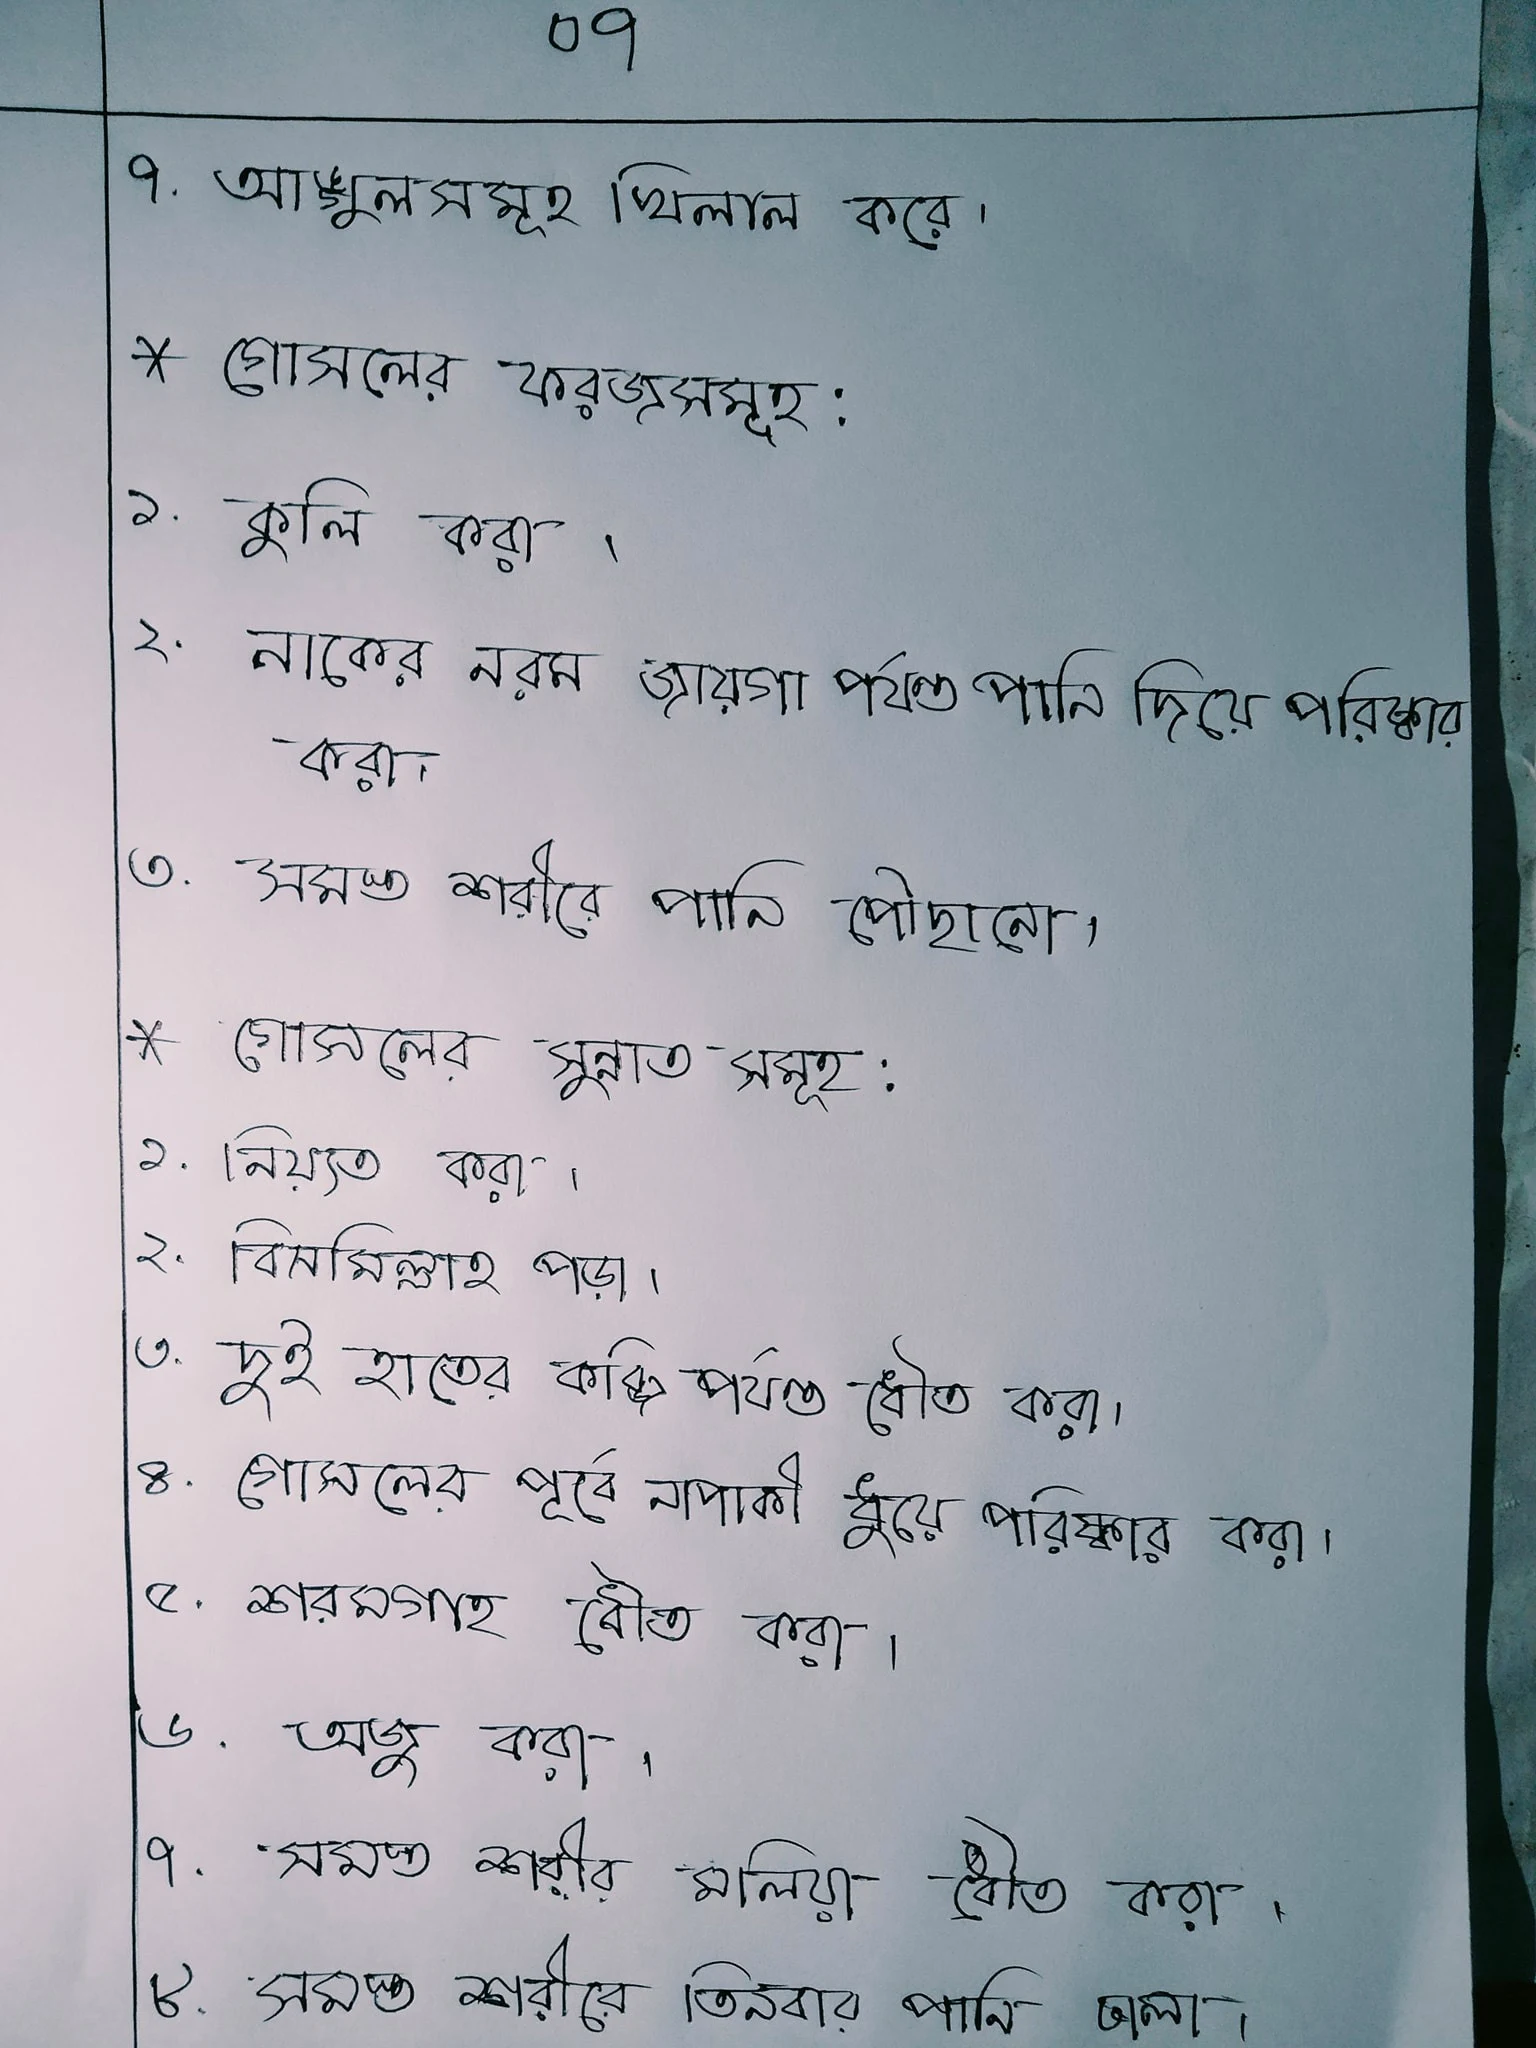 ০৭
৭. আঙ্গুলসমূহ খিলাল করে।
* গোসলের ফরজসমূহ :
১. কুলি করা ।
২. নাকের নরম জায়গা পর্যন্ত পানি দিয়ে পরিষ্কার
করা।
৩. সমস্ত শরীরে পানি পৌছানো।
* গোসলের সুন্নাত সমূহ :
১. নিয়্যত করা ।
২. বিসমিল্লাহ পড়া।
৩. দুই হাতের কব্জি পর্যন্ত ধৌত করা।
৪. গোসলের পূর্বে নাপাকী ধুয়ে পরিষ্কার করা।
৫. শরমগাহ ধৌত করা ।
৬. অজু করা ।
৭. সমস্ত শরীর মলিয়া ধৌত করা ।
৮. সমস্ত শরীরে তিনবার পানি ঢালা ।